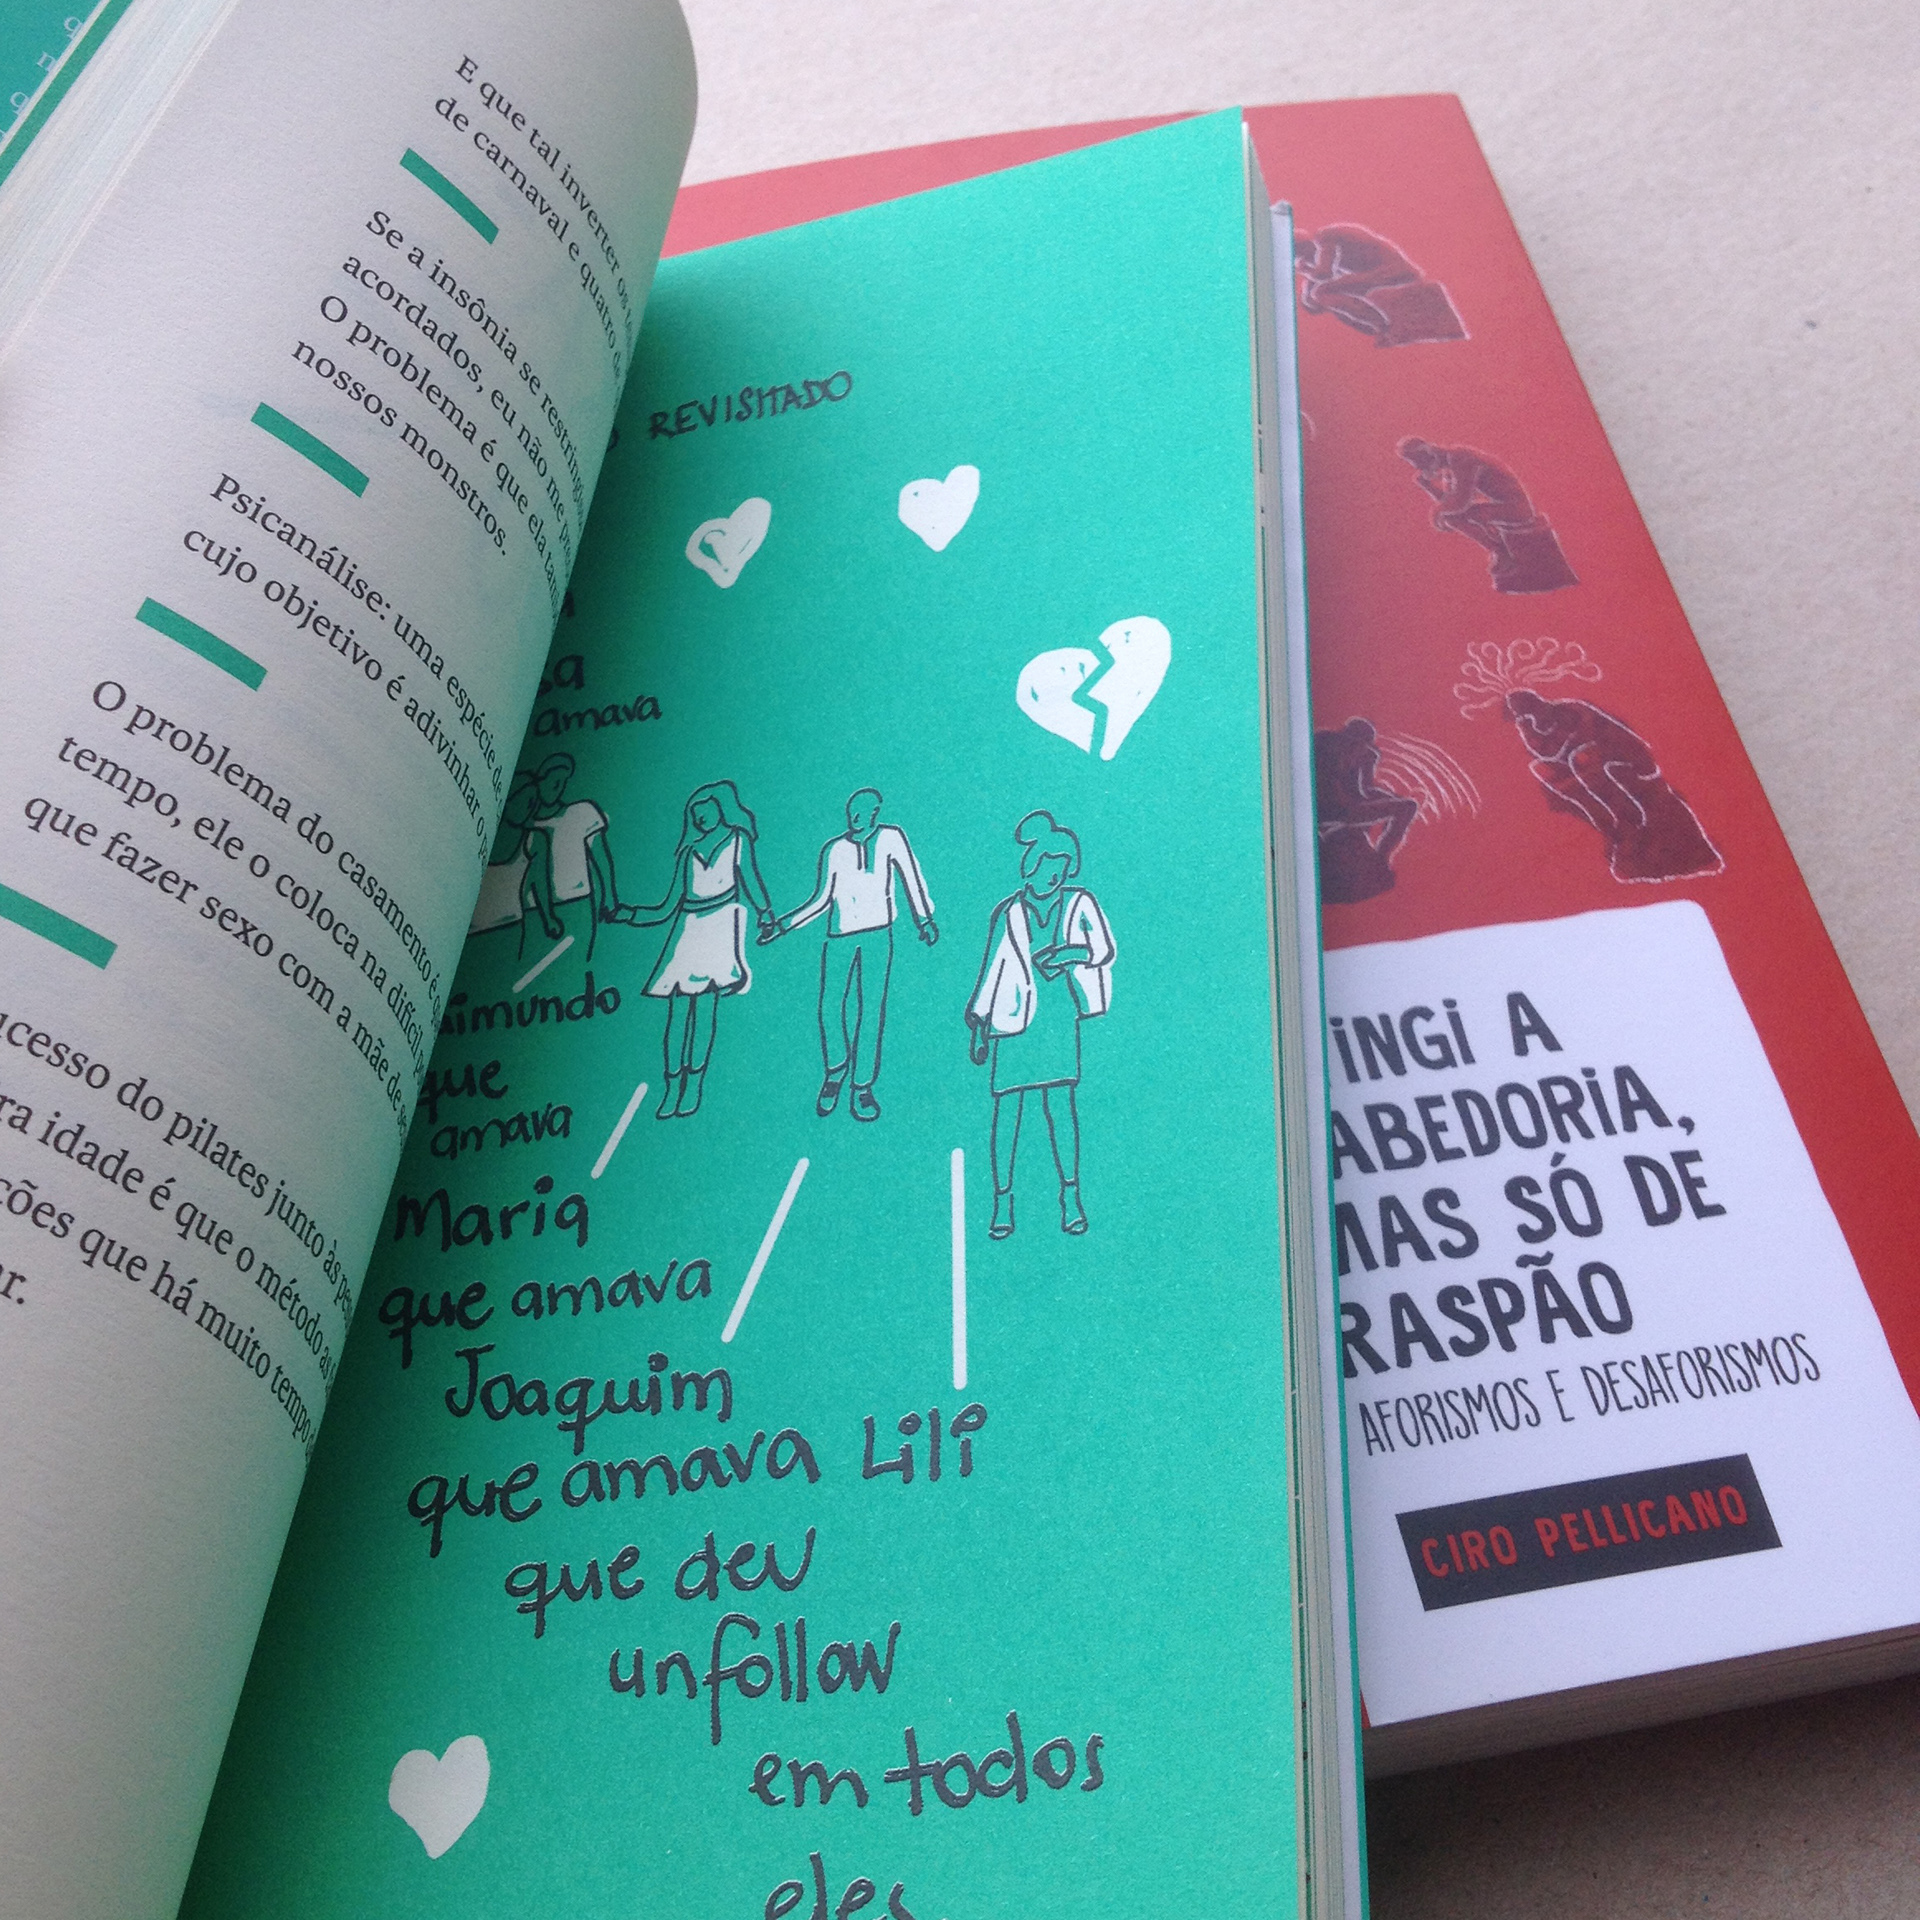 E que tal inverter os
de carnaval e quatro de
Se a insônia se restringisse
acordados, eu não me
O problema é que ela
nossos monstros.
Psicanálise: uma espécie de
cujo objetivo é adivinhar o
O problema do casamento é
tempo, ele o coloca na difícil
que fazer sexo com a mãe de
do pilates junto às
idade é que o método
que há muito tempo
REVISITADO
amava
que
amava
Maria
que amava
Joaquim
que amava Lili
que deu
unfollow
em todos
eles
INGI A
ABEDORIA,
MAS SÓ DE
RASPÃO
AFORISMOS E DESAFORISMOS
CIRO PELLICANO